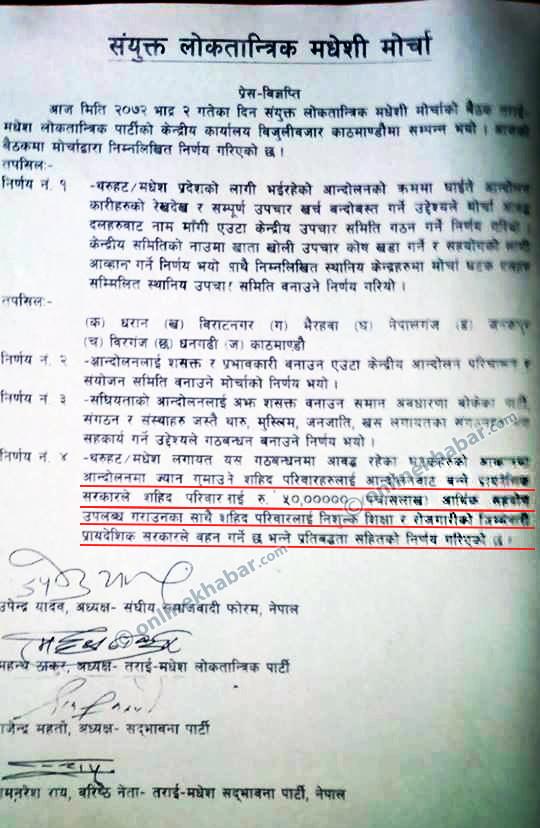 संयुक्त लोकतान्त्रिक मधेशी मोर्चा
प्रेस-विज्ञप्ति
आज मिति २०७२ भाद्र २ गतेका दिन संयुक्त लोकतान्त्रिक मधेशी मोर्चाको बैठक तराई-
मधेश लोकतान्त्रिक पार्टीको केन्द्रीय कार्यालय बिजुलीबजार काठमाण्डौमा सम्पन्न भयो । आजको
बैठकमा मोर्चाद्वारा निम्नलिखित निर्णय गरिएको छ ।
तपसिल:-
निर्णय नं. १ -थरुहट/मधेश प्रदेशको लागी भईरहेको आन्दोलनको क्रममा घाईते आन्दोलन
कारीहरुको रेखदेख र सम्पूर्ण उपचार खर्च बन्दोबस्त गर्ने उद्देश्यले मोर्चा आवद्ध
दलहरुबाट नाम माँगी एउटा केन्द्रीय उपचार समिति गठन गर्ने निर्णय गरियो ।
केन्द्रीय समितिको नाउमा खाता खोली उपचार कोष खडा गर्ने र सहयोगको लागी
आव्हान गर्ने निर्णय भयो साथै निम्नलिखित स्थानिय केन्द्रहरुमा मोर्चा घटक दलहरु
सम्मिलित स्थानिय उपचार समिति बनाउने निर्णय गरियो ।
तपसिल:
(क) धरान (ख) बिराटनगर (ग) भैरहवा (घ) नेपालगंज (ङ) जनकपुर
(च) बिरगंज (छ) धनगढी (ज) काठमाण्डौ
निर्णय नं. २ -आन्दोलनलाई शसक्त र प्रभावकारी बनाउन एउटा केन्द्रीय आन्दोलन परिचालन र
संयोजन समिति बनाउने मोर्चाको निर्णय भयो ।
निर्णय नं. ३ -संघियताको आन्दोलनलाई अझ शसक्त बनाउन समान अवधारणा बोकेका पार्टी,
संगठन र संस्थाहरु जस्तै थारु, मुस्लिम, जनजाति, खस लगायतका संगठनहरु
सहकार्य गर्ने उद्देश्यले गठबन्धन बनाउने निर्णय गरियो ।
निर्णय नं. ४ -थरुहट/मधेश लगायत यस गठबन्धनमा आवद्ध रहेका
आन्दोलनमा ज्यान गुमाउने शहिद परिवारहरुलाई आन्दोलनबाट बन्ने प्रादेशिक
सरकारले शहिद परिवारलाई रु. ५०,००००० पचासलाख आर्थिक सहयोग
उपलब्ध गराउनका साथै शहिद परिवारलाई निशुल्क शिक्षा र रोजगारीको जिम्मेवारी
प्रायदेशिक सरकारले बहन गर्ने छ भन्ने प्रतिबद्धता सहितको निर्णय गरिएको छ ।
उपेन्द्र यादव, अध्यक्ष- संघीय समाजवादी फोरम, नेपाल
महन्थ ठाकुर, अध्यक्ष- तराई-मधेश लोकतान्त्रिक पार्टी
राजेन्द्र महतो, अध्यक्ष- सद्भावना पार्टी
रामनरेश राय, बरिष्ठ नेता- तराई-मधेश सद्भावना पार्टी, नेपाल
© onlinekhabar.com
© onlinekhabar.com